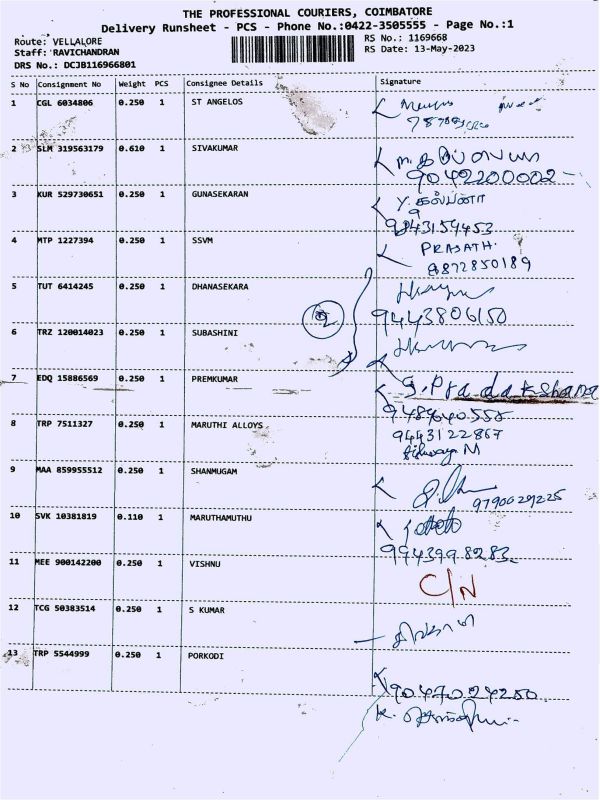 THE PROFESSIONAL COURIERS, COIMBATORE
Delivery Runsheet - PCS - Phone No.:0422-3505555 - Page No.:1
Route: VELLALORE RS No.: 1169668
Staff: RAVICHANDRAN RS Date: 13-May-2023
DRS No.: DCJB116966801
S No Consignment No Weight PCS Consignee Details Signature
1 CGL 6034806 0.250 1 ST ANGELOS
2 SLM 319563179 0.610 1 SIVAKUMAR
9042200002
3 KUR 529730651 0.250 1 GUNASEKARAN
9843159453
4 MTP 1227394 0.250 1 SSVM PRASATH.
8872850189
5 TUT 6414245 0.250 1 DHANASEKARA
9443806150
6 TRZ 120014023 0.250 1 SUBASHINI
7 EDQ 15886569 0.250 1 PREMKUMAR S. Pradakshana
8 TRP 7511327 0.250 1 MARUTHI ALLOYS
9443122867
9 MAA 859955512 0.250 1 SHANMUGAM
9790029225
10 SVK 10381819 0.110 1 MARUTHAMUTHU
9943998283
11 MEE 900142200 0.250 1 VISHNU C/N
12 TCG 50383514 0.250 1 S KUMAR
13 TRP 5544999 0.250 1 PORKODI
9047024250